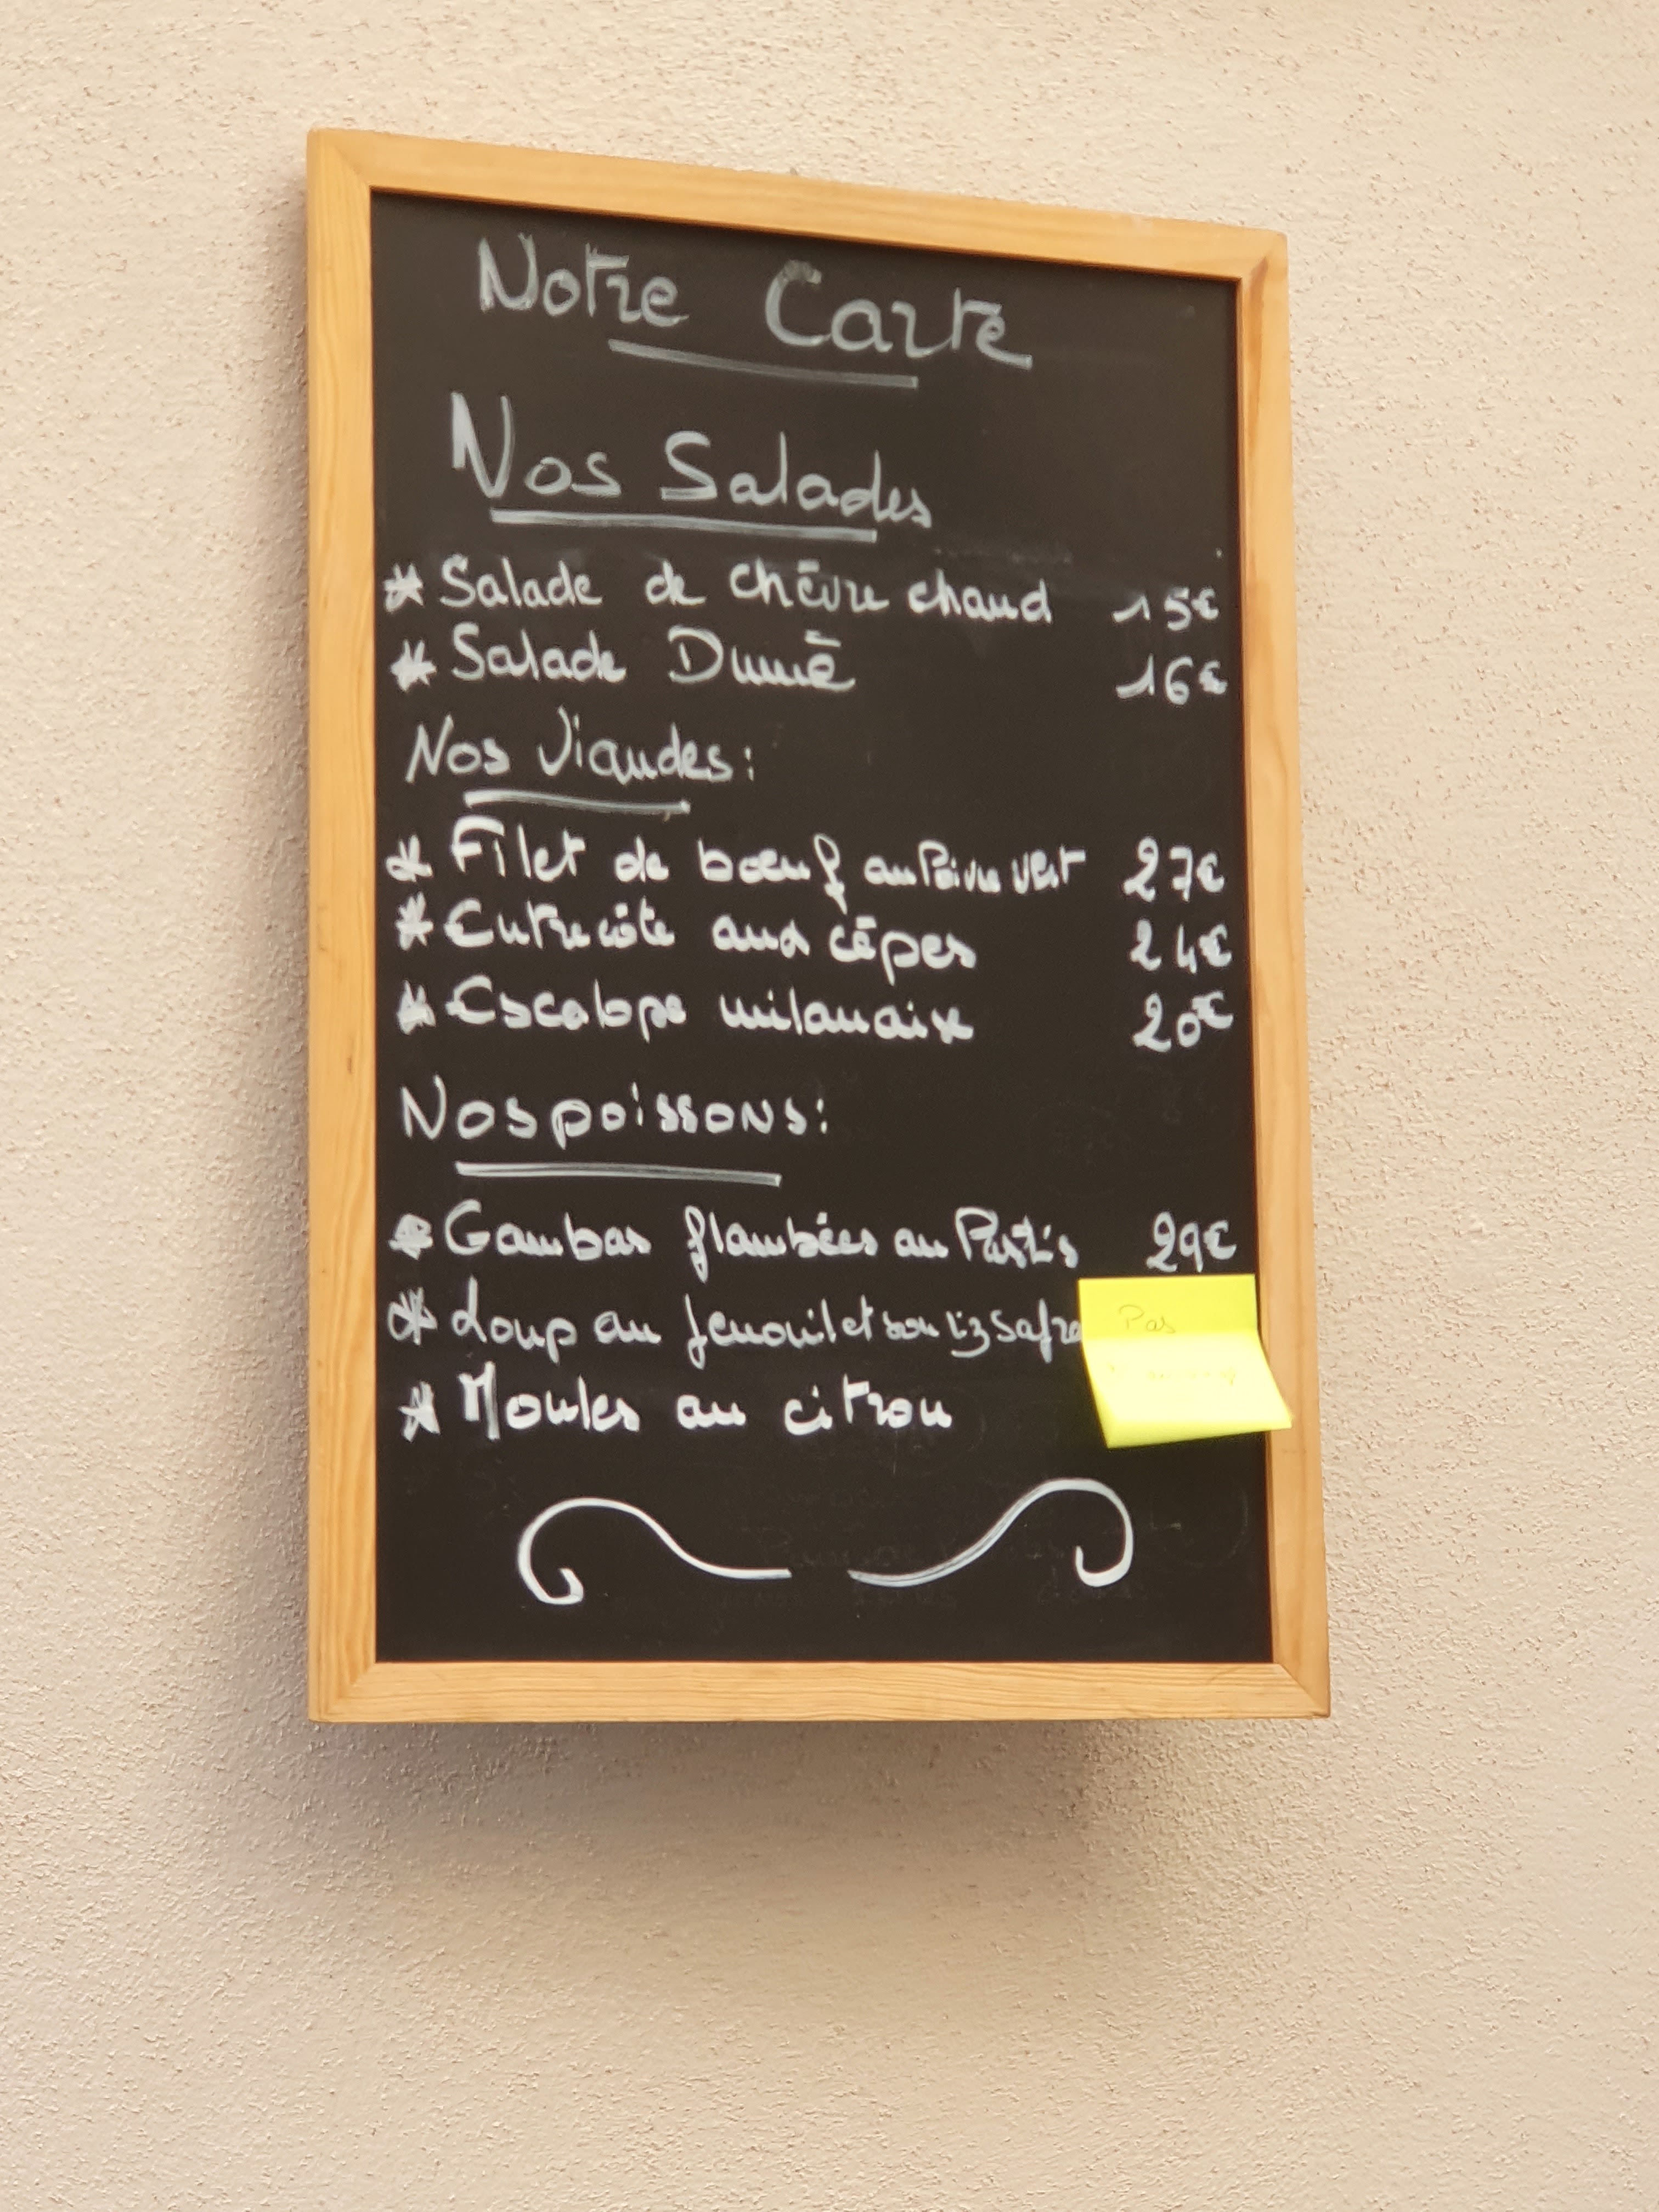 Notre Carte
Nos Salades
* Salade de chèvre chaud 15€
* Salade Dumē 16€
Nos Viandes:
* Filet de bœuf au Poivre vert 27€
* Entrecôte aux cêpes 24€
* Escalope milanaise 20€
Nos poissons:
* Gambas flambées au Pastis 29€
* Loup au fenouil et son riz Safra
Pas
* Moules au citron